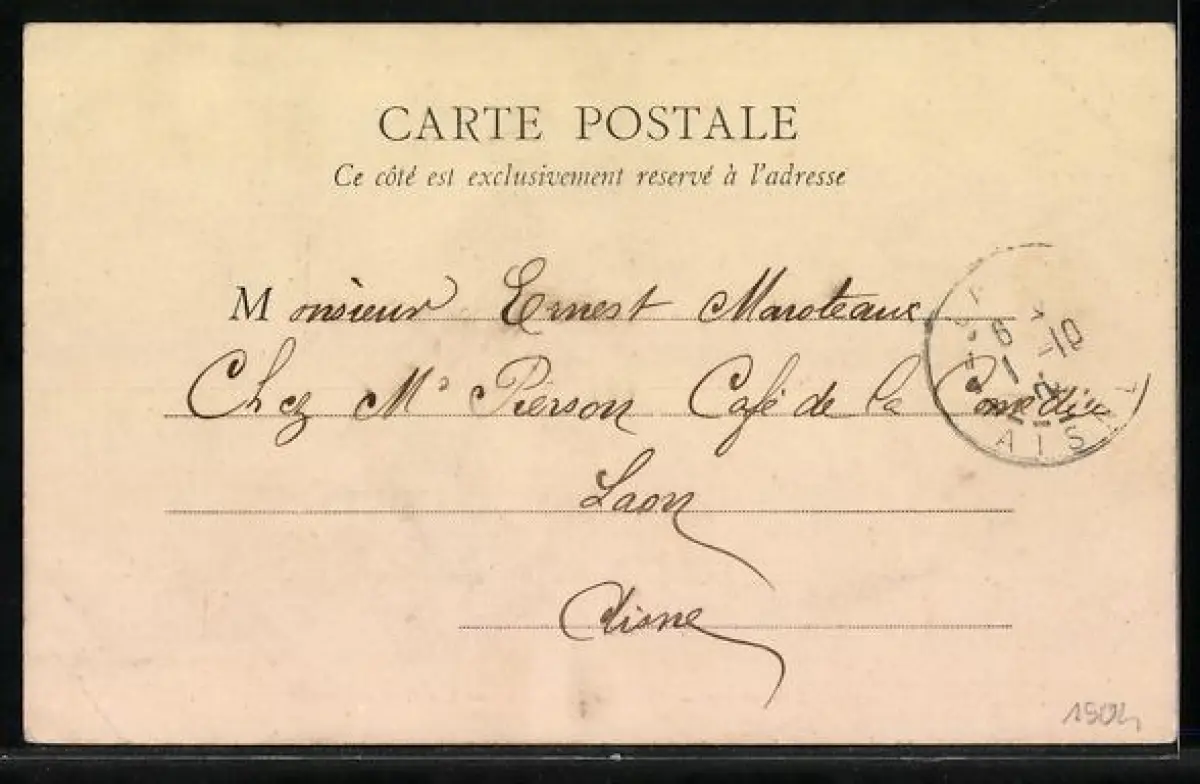 CARTE POSTALE
Ce côté est exclusivement reservé à l'adresse
Monsieur Ernest Maroteaux
Chez Mr Pierson Café de la Comédie
Laon
Aisne
6
1 -10
AISNE
1904